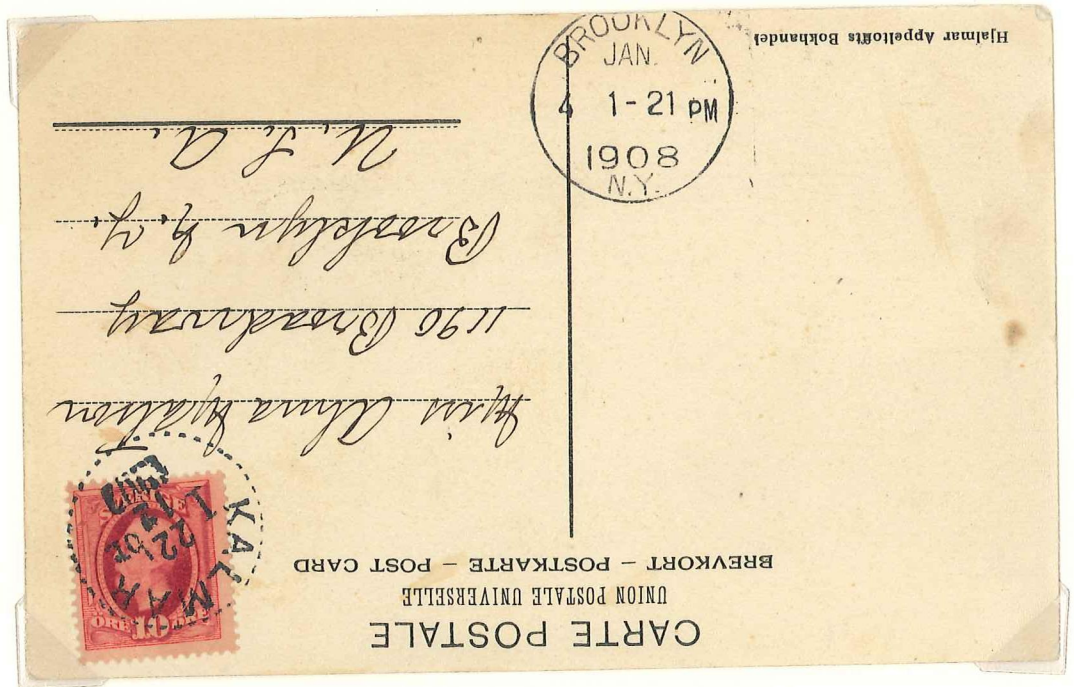 CARTE POSTALE
UNION POSTALE UNIVERSELLE
BREVKORT – POSTKARTE – POST CARD
SVERIGE
ÖRE 10 ÖRE
KALMAR
22 12
Miss Alma Matson
1190 Broadway
Brooklyn N.Y.
U.S.A.
BROOKLYN
JAN.
4 1-21 PM
1908
N.Y.
Hjalmar Appeltoffts Bokhandel